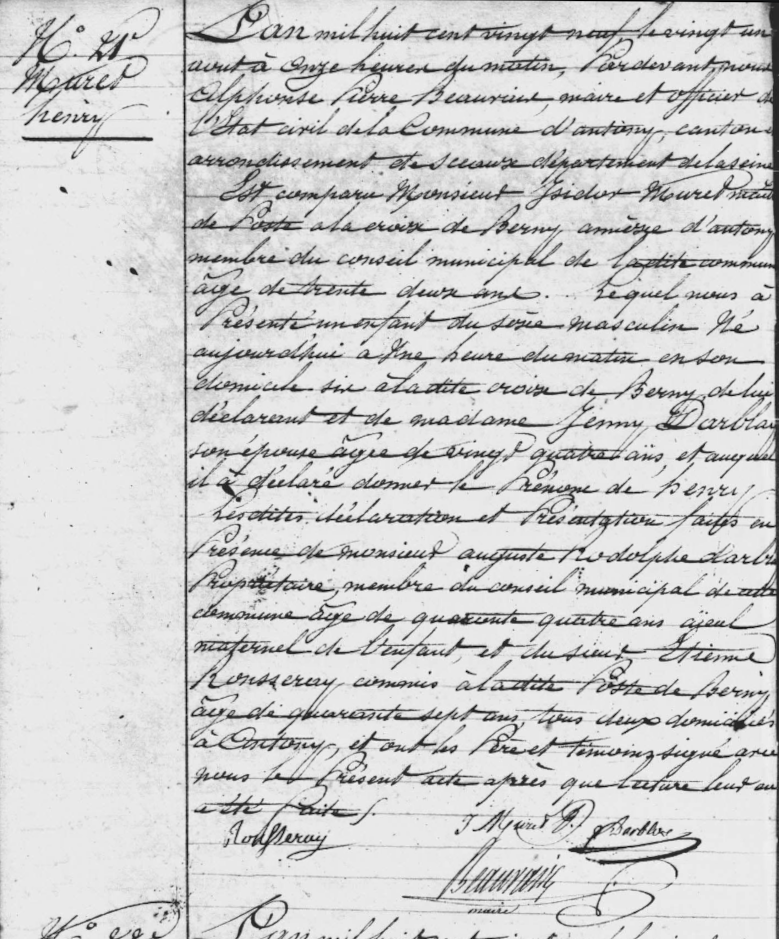 N° 21
Mouret
henry
L'an mil huit cent vingt neuf le vingt un
aout à Onze heures du matin, Pardevant nous
Alphonse Pierre Beauvais, maire et officier de
l'Etat civil de la Commune d'antony, canton
arrondissement de Sceaux département de la seine
Est comparu Monsieur Isidor Mouret maitre
de Poste a la croix de Berny annèxe d'antony
membre du conseil municipal de ladite commune
âgé de trente deux ans. Lequel nous à
Présenté un enfant du séxe masculin Né
aujourdhui a Une heure du matin en son
domicile sis à ladite croix de Berny, de luy
déclarant et de madame Jenny Darblay
son épouse âgée de vingt quatre ans, et auquel
il à déclaré donner le Prénom de henry
Lesdites déclaration et Présentation faites en
Présence de monsieur auguste Rodolphe darblay
Propriétaire, membre du conseil municipal de cette
commune âgé de quarante quatre ans ajeul
maternel de l'enfant, et du sieur Etienne
Rousseray commis à ladite Poste de Berny
âgé de quarante sept ans, tous deux domiciliés
à Antony, et ont les Père et témoins signé avec
nous le Présent acte après que lecture leur en
a été faite.
Rousseray J Mouret Darblay
Beauvais
maire
L'an mil huit cent vingt